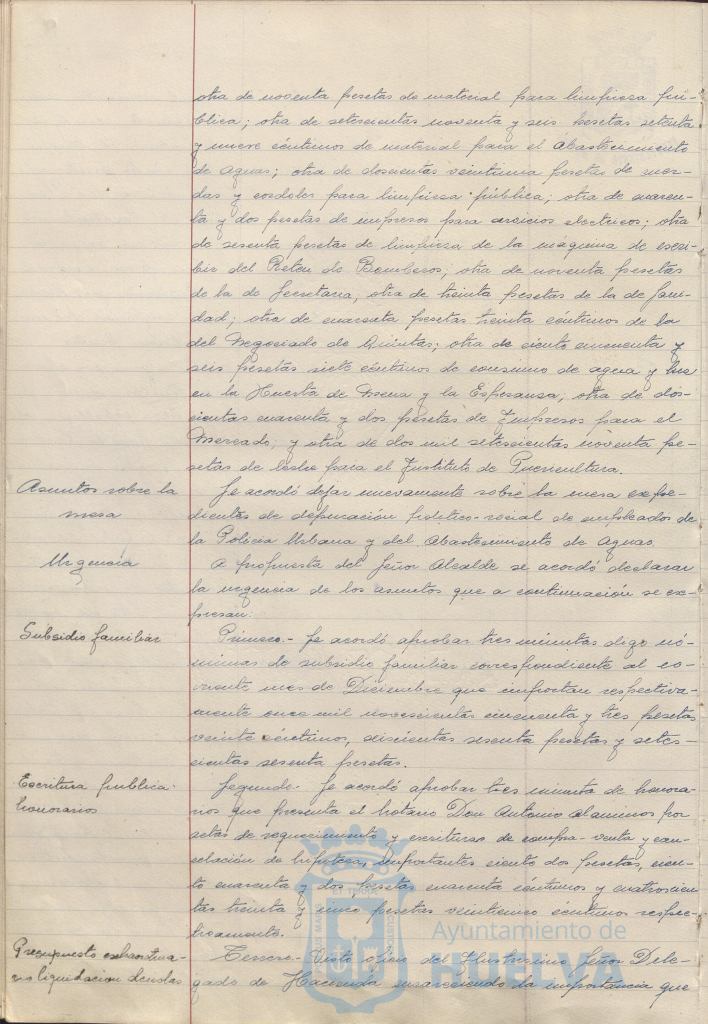 otra de noventa pesetas de material para limpieza pú-
blica; otra de setecientas noventa y seis pesetas setenta
y nueve céntimos de material para el Abastecimiento
de aguas; otra de doscientas veintiuna pesetas de
das y cordeles para limpieza pública; otra de cuaren-
ta y dos pesetas de impresos para arbicios electricos; otra
de sesenta pesetas de limpieza de la máquina de escri-
bir del Reten de Bomberos; otra de noventa pesetas
de la de Secretaria, otra de treinta pesetas de la de Sani-
dad; otra de cuarenta pesetas treinta céntimos de la
del Negociado de Quintas; otra de ciento cincuenta y
seis pesetas siete céntimos de consumo de agua y luz
en la Huerta de Mena y la Esperanza, otra de dos-
cientas cuarenta y dos pesetas de Impresos para el
Mercado, y otra de dos mil setecientas noventa pe-
setas de leche para el Instituto de Puericultura.
Asuntos sobre la
mesa
Se acordó dejar nuevamente sobre la mesa expe-
dientes de depuración político-social de empleados de
la Policia Urbana y del Abastecimiento de Aguas.
Urgencia
A propuesta del Señor Alcalde se acordó declarar
la urgencia de los asuntos que a continuación se ex-
presan:
Subsidio familiar
Primero.- Se acordó aprobar tres minutas digo nó-
minas de subsidio familiar correspondiente al co-
rriente mes de Diciembre que importan respectiva-
mente once mil novecientas cincuenta y tres pesetas
veinte céntimos, seiscientas sesenta pesetas y sete-
cientas sesenta pesetas.
Escritura publica
honorarios
Segundo.- Se acordó aprobar tres minuta de honora-
rios que presenta el notario Don Antonio Alaminos por
actas de requerimiento y escrituras de compra-venta y can-
celación de hipoteca, importantes ciento dos pesetas, cien-
to cuarenta y dos pesetas cuarenta céntimos y cuatrocien-
tas treinta y cinco pesetas veinticinco céntimos respec-
tivamente.
Presupuesto extraordina-
rio liquidacion deudas
Tercero.- Visto oficio del Ilustrísimo Señor Dele-
gado de Hacienda encareciendo la importancia que
Ayuntamiento de
HUELVA